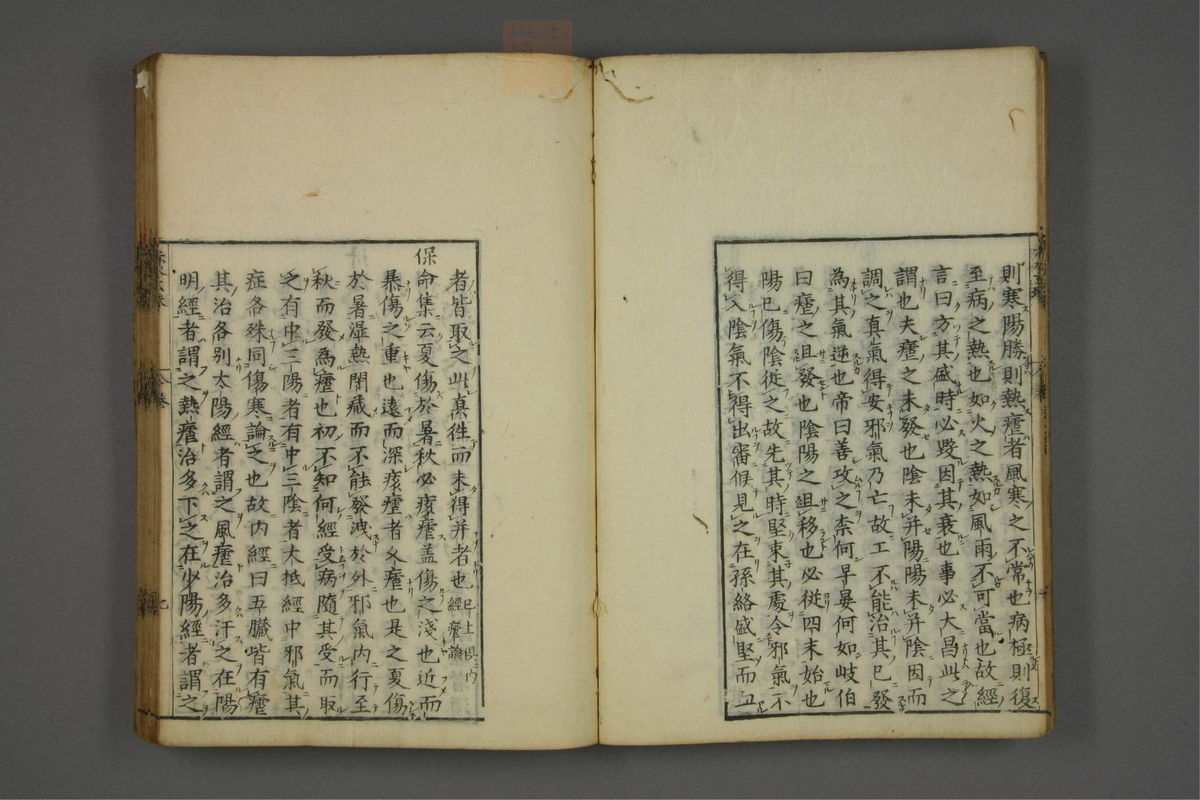 則寒陽勝則熱瘧者風寒之不常也病極則復
至病之熱也如火之熱如風雨不可當也故經
言曰方其盛時必毀因其衰也事必大昌此之
謂也夫瘧之未發也陰未并陽陽未并陰因而
調之真氣得安邪氣乃亡故工不能治其已發
為其氣逆也帝曰善攻之柰何早晏何如岐伯
曰瘧之且發也陰陽之且移也必從四末始也
陽已傷陰從之故先其時堅束其處令邪氣不
得入陰氣不得出審候見之在孫絡盛堅而血
者皆取之此真徃而未得并者也 已上俱内經瘧論
保命集云夏傷於暑秋必痎瘧盖傷之淺也近而
暴傷之重也遠而深痎瘧者乆瘧也是之夏傷
於暑濕熱閉藏而不能發洩於外邪氣内行至
秋而發為瘧也初不知何經受病隨其受而取
之有中三陽者有中三陰者大抵經中邪氣其
症各殊同傷寒論之也故内經曰五臟皆有瘧
其治各别太陽經者謂之風瘧治多汗之在陽
明經者謂之熱瘧治多下之在少陽經者謂之